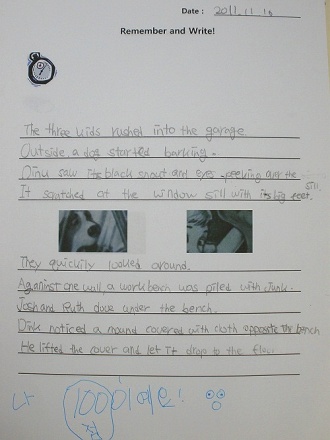 Date : 2011.11.19
Remember and Write!
9
The three kids rushed into the garage
Outside a dog started barking.
Dink saw its black snout and eyes peeking over the sill.
It scratched at the window sill with its big feet.
They quickily looked around.
Againinst one wall a workbench was piled with junk.
Josh and Ruth dove under the bench.
Dink noticed a mound covered with cloth opposite the bench
He lifted the cover and let it drop to the floor
나 100점이에요!